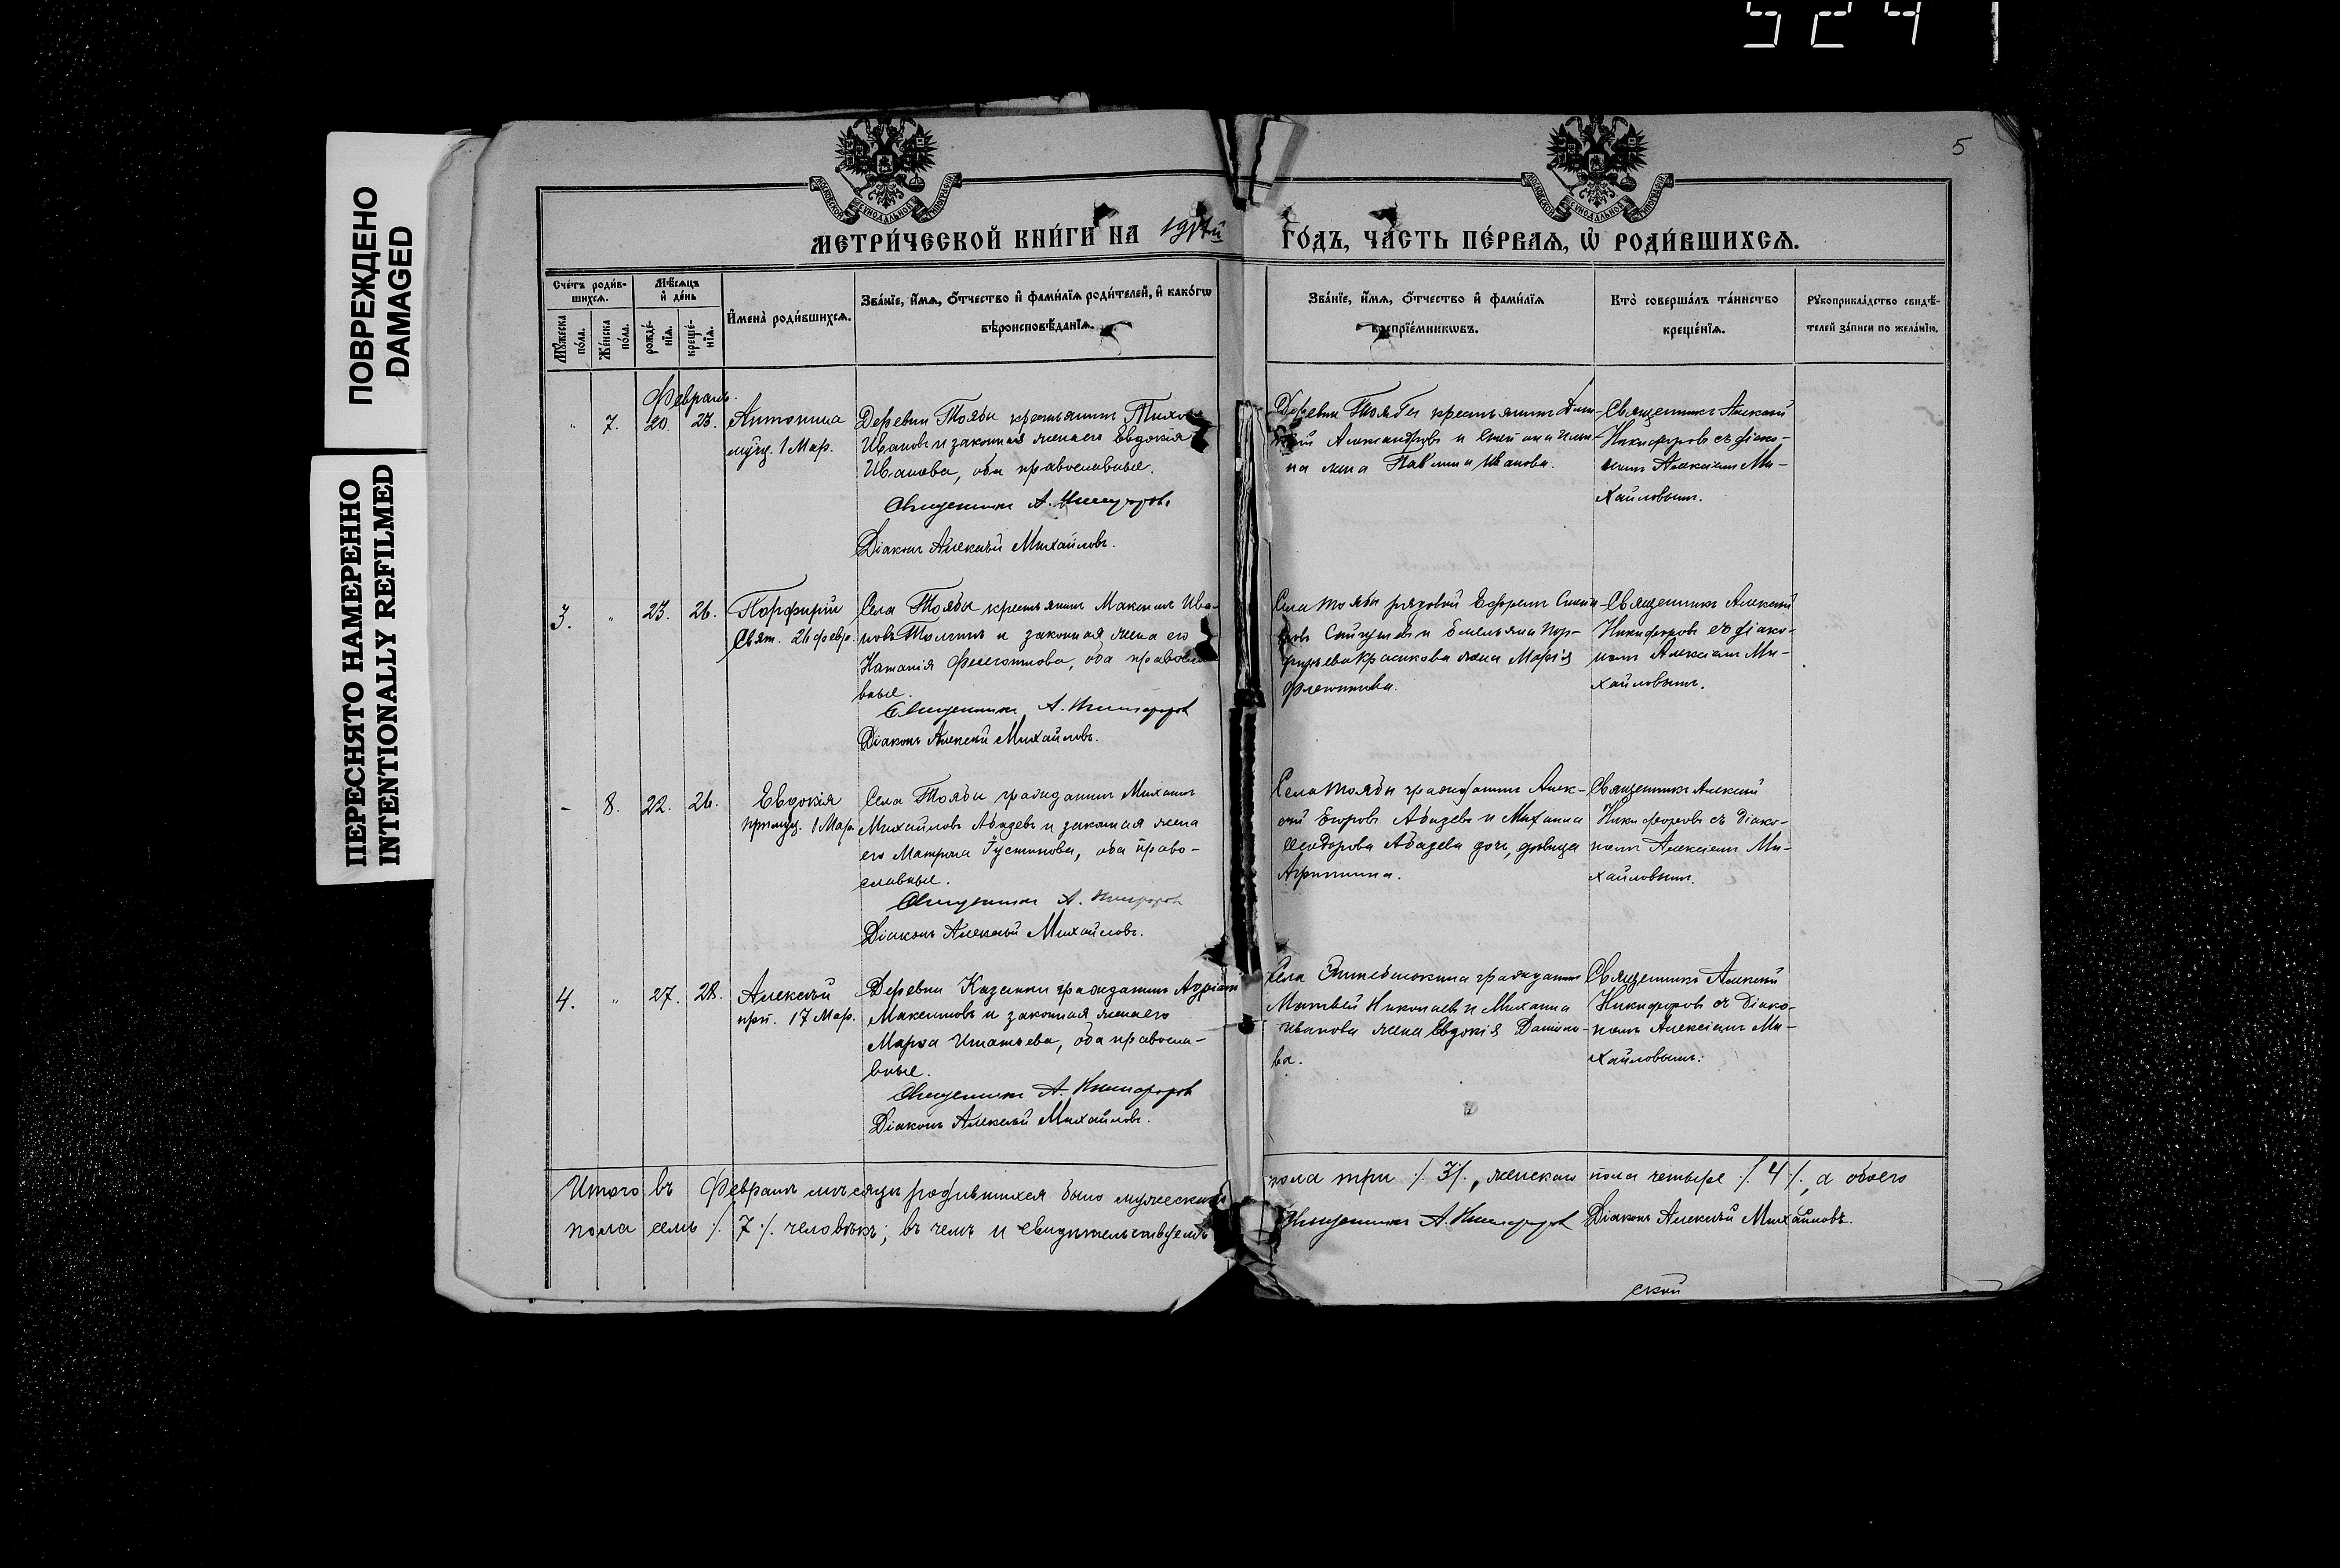 5241
ПОВРЕЖДЕНО
DAMAGED
ПЕРЕСНЯТО НАМЕРЕННО
INTENTIONALLY REFILMED
5
МОСКОВСКОЙ СѴНОДАЛЬНОЙ ТИПОГРАФІИ
МОСКОВСКОЙ СѴНОДАЛЬНОЙ ТИПОГРАФІИ
МЕТРИ́ЧЕСКОЙ КНИ́ГИ НА
ГО́ДЪ, ЧА́СТЬ ПЕ́РВАѦ, Ѡ҆ РОДИ́ВШИХСѦ.
Сче́тъ роди́в-
шихсѧ.
Мѣ́сѧцъ
и҆ де́нь
Мꙋ́жеска
по́ла.
Же́нска
по́ла.
рожде́-
нїѧ.
креще́-
нїѧ.
И҆мена̀ роди́вшихсѧ.
Зва́нїе, и҆́мѧ, ѻ҆́тчество и҆ фами́лїѧ роди́телей, и҆ како́гѡ
вѣроисповѣ́данїѧ.
Зва́нїе, и҆́мѧ, ѻ҆́тчество и҆ фами́лїѧ
воспрїе́мникѡвъ.
Кто̀ соверша́лъ та́инство
креще́нїѧ.
Рꙋкоприкла́дство свидѣ́-
телей за́писи по жела́нїю.
Февраль.
" 7. 20. 23.
Антонина
муч. 1 Мар.
Деревни Тоябы крестьянинъ
Ивановъ и законная жена его Евдокія
Иванова, оба православные.
Священникъ А. Никифоровъ
Діаконъ Алексѣй Михайловъ.
Деревни Тоябы крестьянинъ
Александровъ и
жена Иванова.
Священникъ Алексѣй
Никифоровъ съ діако-
номъ Алексіемъ Ми-
хайловымъ.
3. " 23. 26.
Порфирій
Свят. 26 февр.
Села Тоябы крестьянинъ Максимъ Ива-
новъ и законная жена его
Наталія оба правосла-
вные.
Священникъ А. Никифоровъ
Діаконъ Алексѣй Михайловъ.
Села Тоябы рядовой Ефремъ
и Емельяна Пор-
фирьева Красикова жена Марія
Священникъ Алексѣй
Никифоровъ съ діако-
номъ Алексіемъ Ми-
хайловымъ.
- 8. 22. 26.
Евдокія
прпмуч. 1 Мар.
Села Тоябы гражданинъ Михаилъ
Михайловъ и законная жена
его Матрона Густинова, оба право-
славные.
Священникъ А. Никифоровъ
Діаконъ Алексѣй Михайловъ.
Села Тоябы гражданинъ Алек-
сѣй Егоровъ и Михаила
Ѳеодорова дочь, дѣвица
Агриппина.
Священникъ Алексѣй
Никифоровъ съ діако-
номъ Алексіемъ Ми-
хайловымъ.
4. " 27. 28.
Алексѣй
прп. 17 Мар.
Деревни Казанки гражданинъ Адріанъ
Максимовъ и законная жена его
Марѳа Игнатьева, оба правосла-
вные.
Священникъ А. Никифоровъ
Діаконъ Алексѣй Михайловъ.
Села гражданинъ
Матвѣй Николаевъ и Михаила
Иванова жена Евдокія Данило-
ва.
Священникъ Алексѣй
Никифоровъ съ діако-
номъ Алексіемъ Ми-
хайловымъ.
Итого въ Февралѣ мѣсяцѣ родившихся было мужескаго
пола три ./. 3 ./., женскаго пола четыре ./. 4 ./., а обоего
пола семь ./. 7 ./. человѣкъ; въ чемъ и свидѣтельствуемъ
Священникъ А. Никифоровъ Діаконъ Алексѣй Михайловъ.
ской